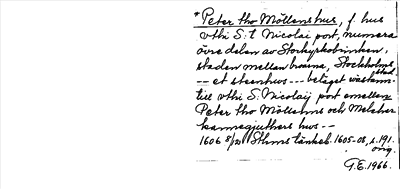 * Peter tho Möllens hus, f. hus
vthi S:t Nicolai port, numera
övre delen av Storkyrkobrinken,
staden mellan broarna, Stockholms
stad.
-- et steenhus --- belägit wästan-
till vthi S. Nicolaij port emellan
Peter tho Möllens och Melcher
kannegjuthers hus --
1606 8/2 Sthms tänkeb. 1605-08, s. 191.
orig.
G.E. 1966.